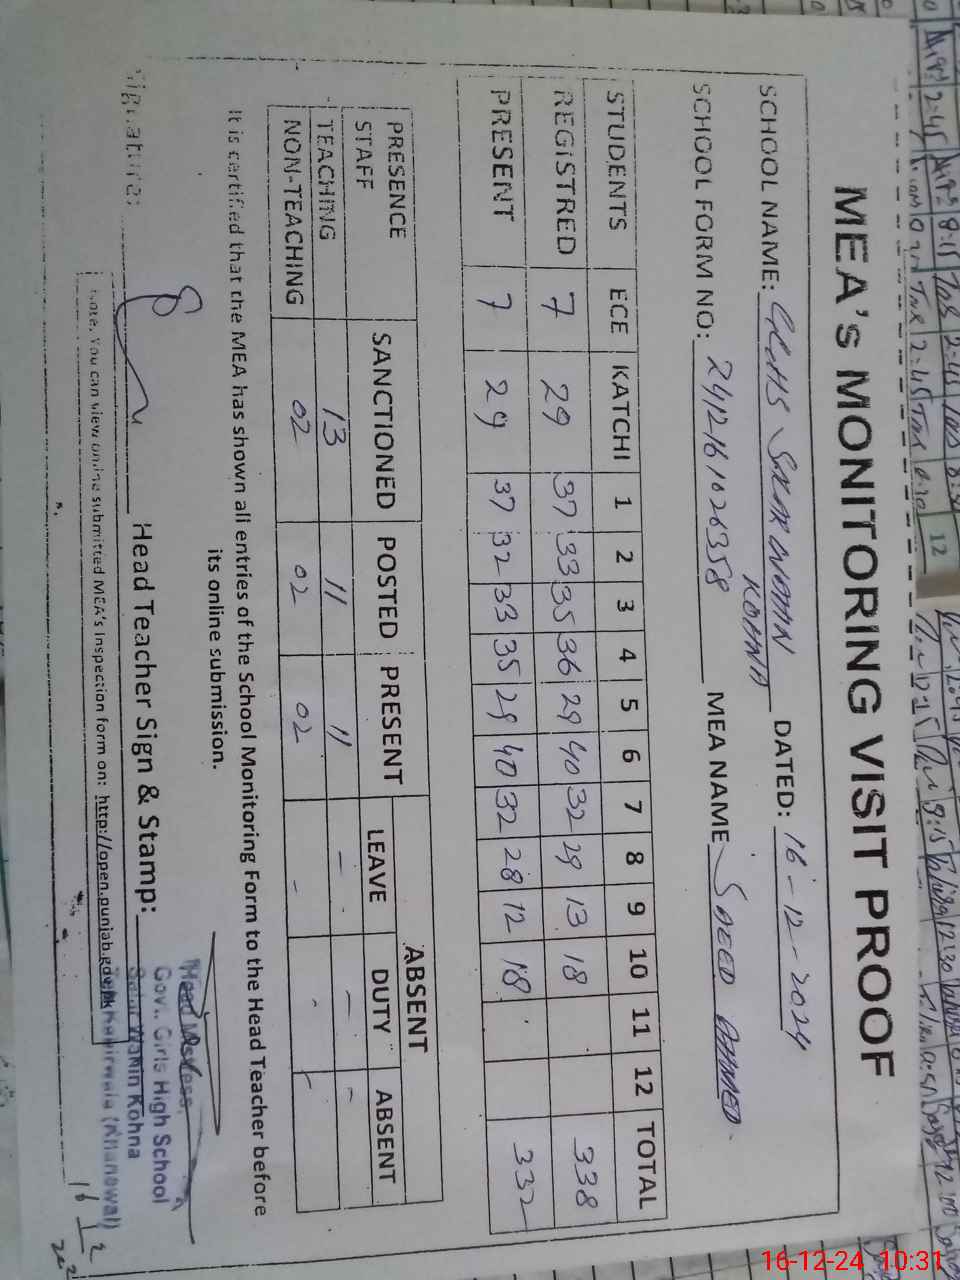 MEA'S MONITORING VISIT PROOF
SCHOOL NAME: GGHS DATED: 16-12-2024
KOHNA
SCHOOL FORM NO: 2412161026358 MEA NAME SAEED AHMED
STUDENTS ECE KATCHI 1 2 3 4 5 6 7 8 9 10 11 12 TOTAL
REGISTRED 7 29 37 33 35 36 29 40 32 29 13 18 338
PRESENT 7 29 37 32 33 35 29 40 32 28 12 18 332
PRESENCE STAFF SANCTIONED POSTED PRESENT ABSENT
LEAVE DUTY ABSENT
TEACHING 13 11 11 - - -
NON-TEACHING 02 02 02 - - -
It is certified that the MEA has shown all entries of the School Monitoring Form to the Head Teacher before
its online submission.
Signature: Head Teacher Sign & Stamp:
Head Mistress,
Govt. Girls High School
Wahin Kohna
Note. You can view online submitted MEA's Inspection form on: http://open.punjab.gov.pk
16
12
16-12-24 10:31